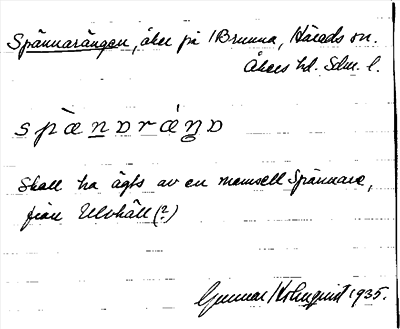 Spännarängen, åker på 1 Brunna, Härads sn.
Åkers hd. Sdm. l.
spæ̀nnɒræ̀ŋɒ
Skall ha ägts av en mamsell Spännare,
från Ulvhäll (?)
Gunnar Holmquist 1935.